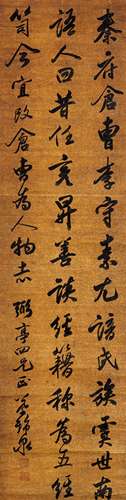 秦府倉曹李守素尤諳氏族虞世南
語人曰昔任彥昇善談經籍稱為五經
笥今宜改倉曹為人物志 弼亭四兄正